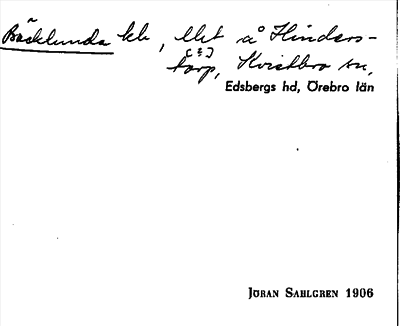 Bäcklunda kk, llt å Hinders-
torp, Kvistbro sn,
Edsbergs hd, Örebro län
JÖRAN SAHLGREN 1906